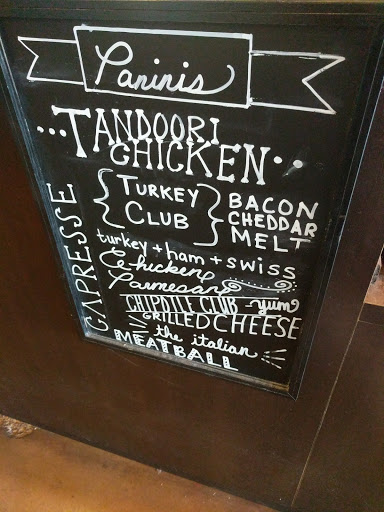 Paninis
...TANDOORI
CHICKEN..
{TURKEY
CLUB}
BACON
CHEDDAR
MELT
turkey + ham + swiss
Chicken
Parmesan
CHIPOTLE CLUB yum
GRILLED CHEESE
the italian
MEATBALL
CAPRESSE